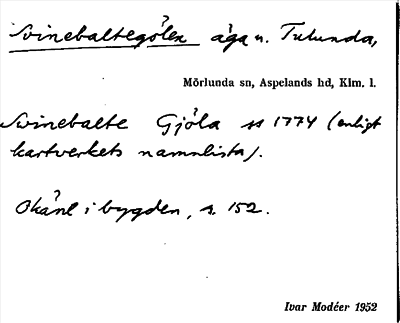 Svinebaltegölen äga u. Tulunda,
Mörlunda sn, Aspelands hd, Klm. l.
Svinebalte Gjöla ss 1774 (enligt
kartverkets namnlista).
Okänt i bygden, s. 152.
Ivar Modéer 1952